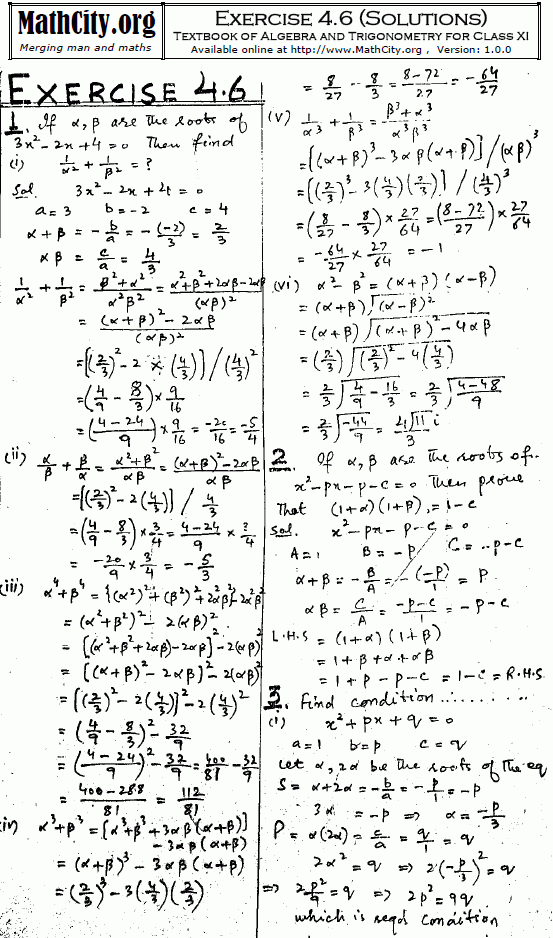 MathCity.org
Merging man and maths
EXERCISE 4.6 (SOLUTIONS)
TEXTBOOK OF ALGEBRA AND TRIGONOMETRY FOR CLASS XI
Available online at http://www.MathCity.org , Version: 1.0.0
EXERCISE 4.6
1. If α, β are the roots of
3x² - 2x + 4 = 0 Then find
(i) 1/α² + 1/β² = ?
Sol. 3x² - 2x + 4 = 0
a = 3 b = -2 c = 4
α + β = -b/a = -(-2)/3 = 2/3
αβ = c/a = 4/3
1/α² + 1/β² = β² + α²/α²β² = α² + β² + 2αβ - 2αβ/(αβ)²
= (α + β)² - 2αβ/(αβ)²
= [(2/3)² - 2 × (4/3)] / (4/3)²
= (4/9 - 8/3) × 9/16
= (4 - 24/9) × 9/16 = -20/16 = -5/4
(ii) α/β + β/α = α² + β²/αβ = (α + β)² - 2αβ/αβ
= [(2/3)² - 2(4/3)] / 4/3
= (4/9 - 8/3) × 3/4 = 4 - 24/9 × 3/4
= -20/9 × 3/4 = -5/3
(iii) α⁴ + β⁴ = {(α²)² + (β²)² + 2α²β²} - 2α²β²
= (α² + β²)² - 2(αβ)²
= [(α² + β² + 2αβ) - 2αβ]² - 2(αβ)²
= [(α + β)² - 2αβ]² - 2(αβ)²
= [(2/3)² - 2(4/3)]² - 2(4/3)²
= (4/9 - 8/3)² - 32/9
= (4 - 24/9)² - 32/9 = 400/81 - 32/9
= 400 - 288/81 = 112/81
(iv) α³ + β³ = [α³ + β³ + 3αβ(α + β)]
- 3αβ(α + β)
= (α + β)³ - 3αβ(α + β)
= (2/3)³ - 3(4/3)(2/3)
= 8/27 - 8/3 = 8 - 72/27 = -64/27
(v) 1/α³ + 1/β³ = β³ + α³/α³β³
= [(α + β)³ - 3αβ(α + β)] / (αβ)³
= [(2/3)³ - 3(4/3)(2/3)] / (4/3)³
= (8/27 - 8/3) × 27/64 = (8 - 72/27) × 27/64
= -64/27 × 27/64 = -1
(vi) α² - β² = (α + β)(α - β)
= (α + β)√(α - β)²
= (α + β)√(α + β)² - 4αβ
= (2/3)√(2/3)² - 4(4/3)
= 2/3 √4/9 - 16/3 = 2/3 √4 - 48/9
= 2/3 √-44/9 = 4√11/3 i
2. If α, β are the roots of
x² - px - p - c = 0 Then prove
That (1 + α)(1 + β) = 1 - c
Sol. x² - px - p - c = 0
A = 1 B = -p C = -p - c
α + β = -B/A = -(-p)/1 = p
αβ = C/A = -p - c/1 = -p - c
L.H.S = (1 + α)(1 + β)
= 1 + β + α + αβ
= 1 + p - p - c = 1 - c = R.H.S
3. Find condition ..........
(i) x² + px + q = 0
a = 1 b = p c = q
Let α, 2α be the roots of the eq
S = α + 2α = -b/a = -p/1 = -p
3α = -p ⇒ α = -p/3
P = α(2α) = c/a = q/1 = q
2α² = q ⇒ 2(-p/3)² = q
⇒ 2p²/9 = q ⇒ 2p² = 9q
which is reqd condition